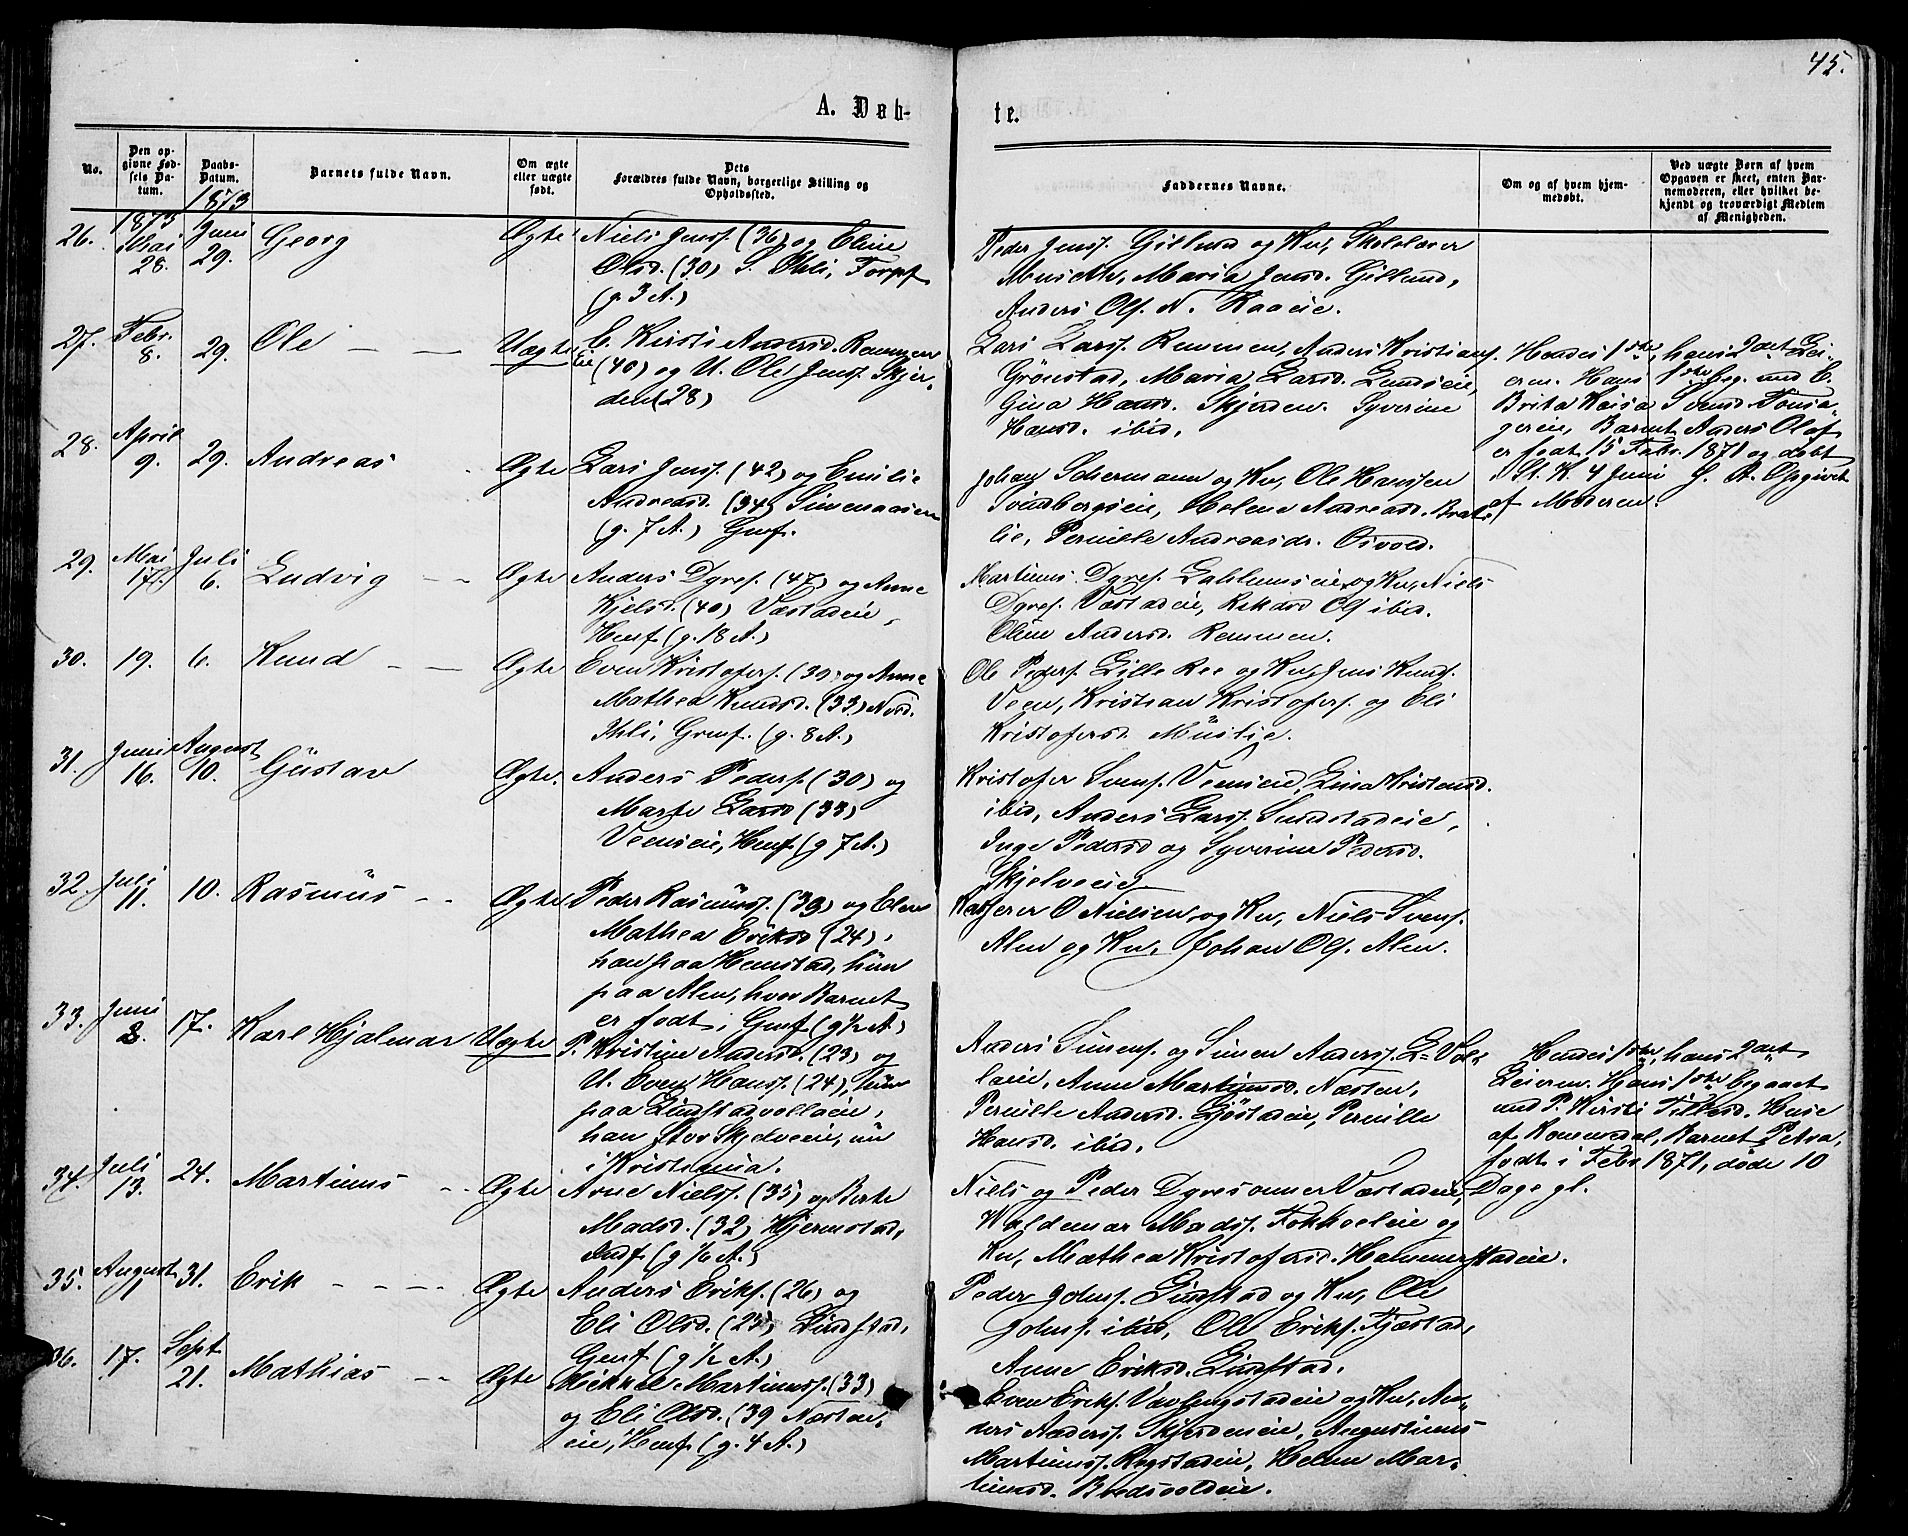 45.
A. Døb-
te.
No.
Den op-
givne Fød-
sels Da-
tum.
Daabs-
Datum.
Barnets fulde Navn.
Om ægte
eller uægte
født.
Dets
Forældres fulde Navn, borgerlige Stilling og
Opholdssted.
Faddernes Navne.
Om og af hvem hjem-
medøbt.
Ved uægte Børn af hvem
Opgaven er skeet, enten Bar-
nemoderen, eller hvilket be-
kjendt og troværdigt Medlem
af Menigheden.
1873 1873
26. Mai 28. Juni 29. Georg Ægte Niels Jenss. (36) og Eline
Olsd. (30) S. Ihli, Torpf
(g. 3 A.)
Peder Jenss. Gillund og Kv, Skolelærer
Musæth, Maria Jensd. Gillund,
Anders Ols. N. Kaaeie.
27. Febr. 8. 29. Ole Uægte E. Kirsti Andersd. Remmen
Eie (40) og U. Ole Jenss. Skjer-
den (28)
Lars Larss. Remmen, Anders Kristians.
Grönstad, Maria Larsd. Lundseie,
Gina Hansd. Skjerden. Syverine
Hansd. ibid.
Hendes 1ste, hans 2det Lei-
erm. Hans 1ste beg. med E.
Brita Kaisa Svensd. Tonsa-
gereie, Barnet Anders Olaf
er født 15 Febr. 1871 og døbt
i St. K. 4 Juni G. A. Opgivet
af Moderen.
28. April 9. 29. Andreas Ægte Lars Jenss. (42) og Emilie
Andreasd. (34) Simenaasen
(g. 7 A.) Grnf.
Johan Schermann og Kv, Ole Hanssen
Svindbergseie, Helene Andreasd. Brate-
lie, Pernille Andreasdr. Osvold.
29. Mai 17. Juli 6. Ludvig Ægte Anders Dyres. (47) og Anne
Kjelsd. (40) Væstadeie,
Hemf (g. 18 A.)
Martinus Dyres. Lablumseie og Kv, Niels
Dyres. Væstadeie, Rikard Ols ibid.
Oline Andersd. Remmen.
30. 19. 6. Knud Ægte Even Kristofers. (39) og Anne
Mathea Knudsd. (33) Nord.
Ihli, Grnf. (g. 8 A.)
Ole Peders. Lille Ree og Kv, Jens Knuds.
Veen, Kristian Kristofers. og Eli
Kristofersd. Müslie.
31. Juni 16. August 10. Güstav Ægte. Anders Peders. (30) og
Marte Larsd (33)
Veenseie, Hemf. (g 7 A.)
Kristofer Svens. Veenseie, Lina Kristensd.
ibid, Anders Larss. Sundstadeie,
Inge Pedersd og Syverine Pedersd.
Skjelveeie
32. Juli 11. 10. Rasmüs Ægte Peder Rasmüss. (39) og Elen
Mathea Eriksd (24),
han paa Hemstad, hün
paa Alen, hvor Barnet
er født i Grnf (g ½ A.)
Kasserer O Nielsen og Kv, Niels Svens.
Alen og Kv, Johan Ols. Alen.
33. Juni 3. 17. Karl Hjalmar Uægte P. Kristine Andersd. (23) og
U. Even Hanss. (24), hün
paa Lindstadvollaeie,
han Stor Skjelveeie, nü
i Kristiania.
Anders Simens. og Simen Anderss. L=Vol-
laeie, Anne Martinusd. Næsten,
Pernille Andersd. Gjöstadeie, Pernille
Hansd. ibid.
Hendes 1ste, hans 2det
Leierm. Hans 1ste begaaet
med P. Kirsti Tillesd. Huse
af Romedal, Barnet Petra,
født i Febr. 1871, døde 10
Dage gl.
34. Juli 13. 24. Martinus Ægte Arne Nielss. (35) og Berte
Madsd. (32) Hjermstad,
Indf (g 1/6 A.)
Niels og Peder Dyresønner Væstadeie,
Waldemar Madss. Fokholeie og
Kv, Mathea Kristofersd. Hammerstadeie.
35. August 1. 31. Erik Ægte Anders Eriks. (26) og
Eli Olsd. (23) Lindstad,
Grnf (g ½ A.)
Peder Johns. Lindstad og Kv, Ole
Johns. ibid, Ole Eriks. Fjæstad,
Anne Eriksd. Lindstad.
36. 17. Sept. 21. Mathias Ægte Mickael Martinuss. (33)
og Eli Olsd. (39 Næsten-
eie, Hemf (g. 4 A.)
Even Eriks. Vævlingstadeie og Kv, An-
ders Anderss. Skjerdeneie, Augustinus
Martinuss. Rogstadeie, Helene Mar-
tinusd. Bredsvoldeie.